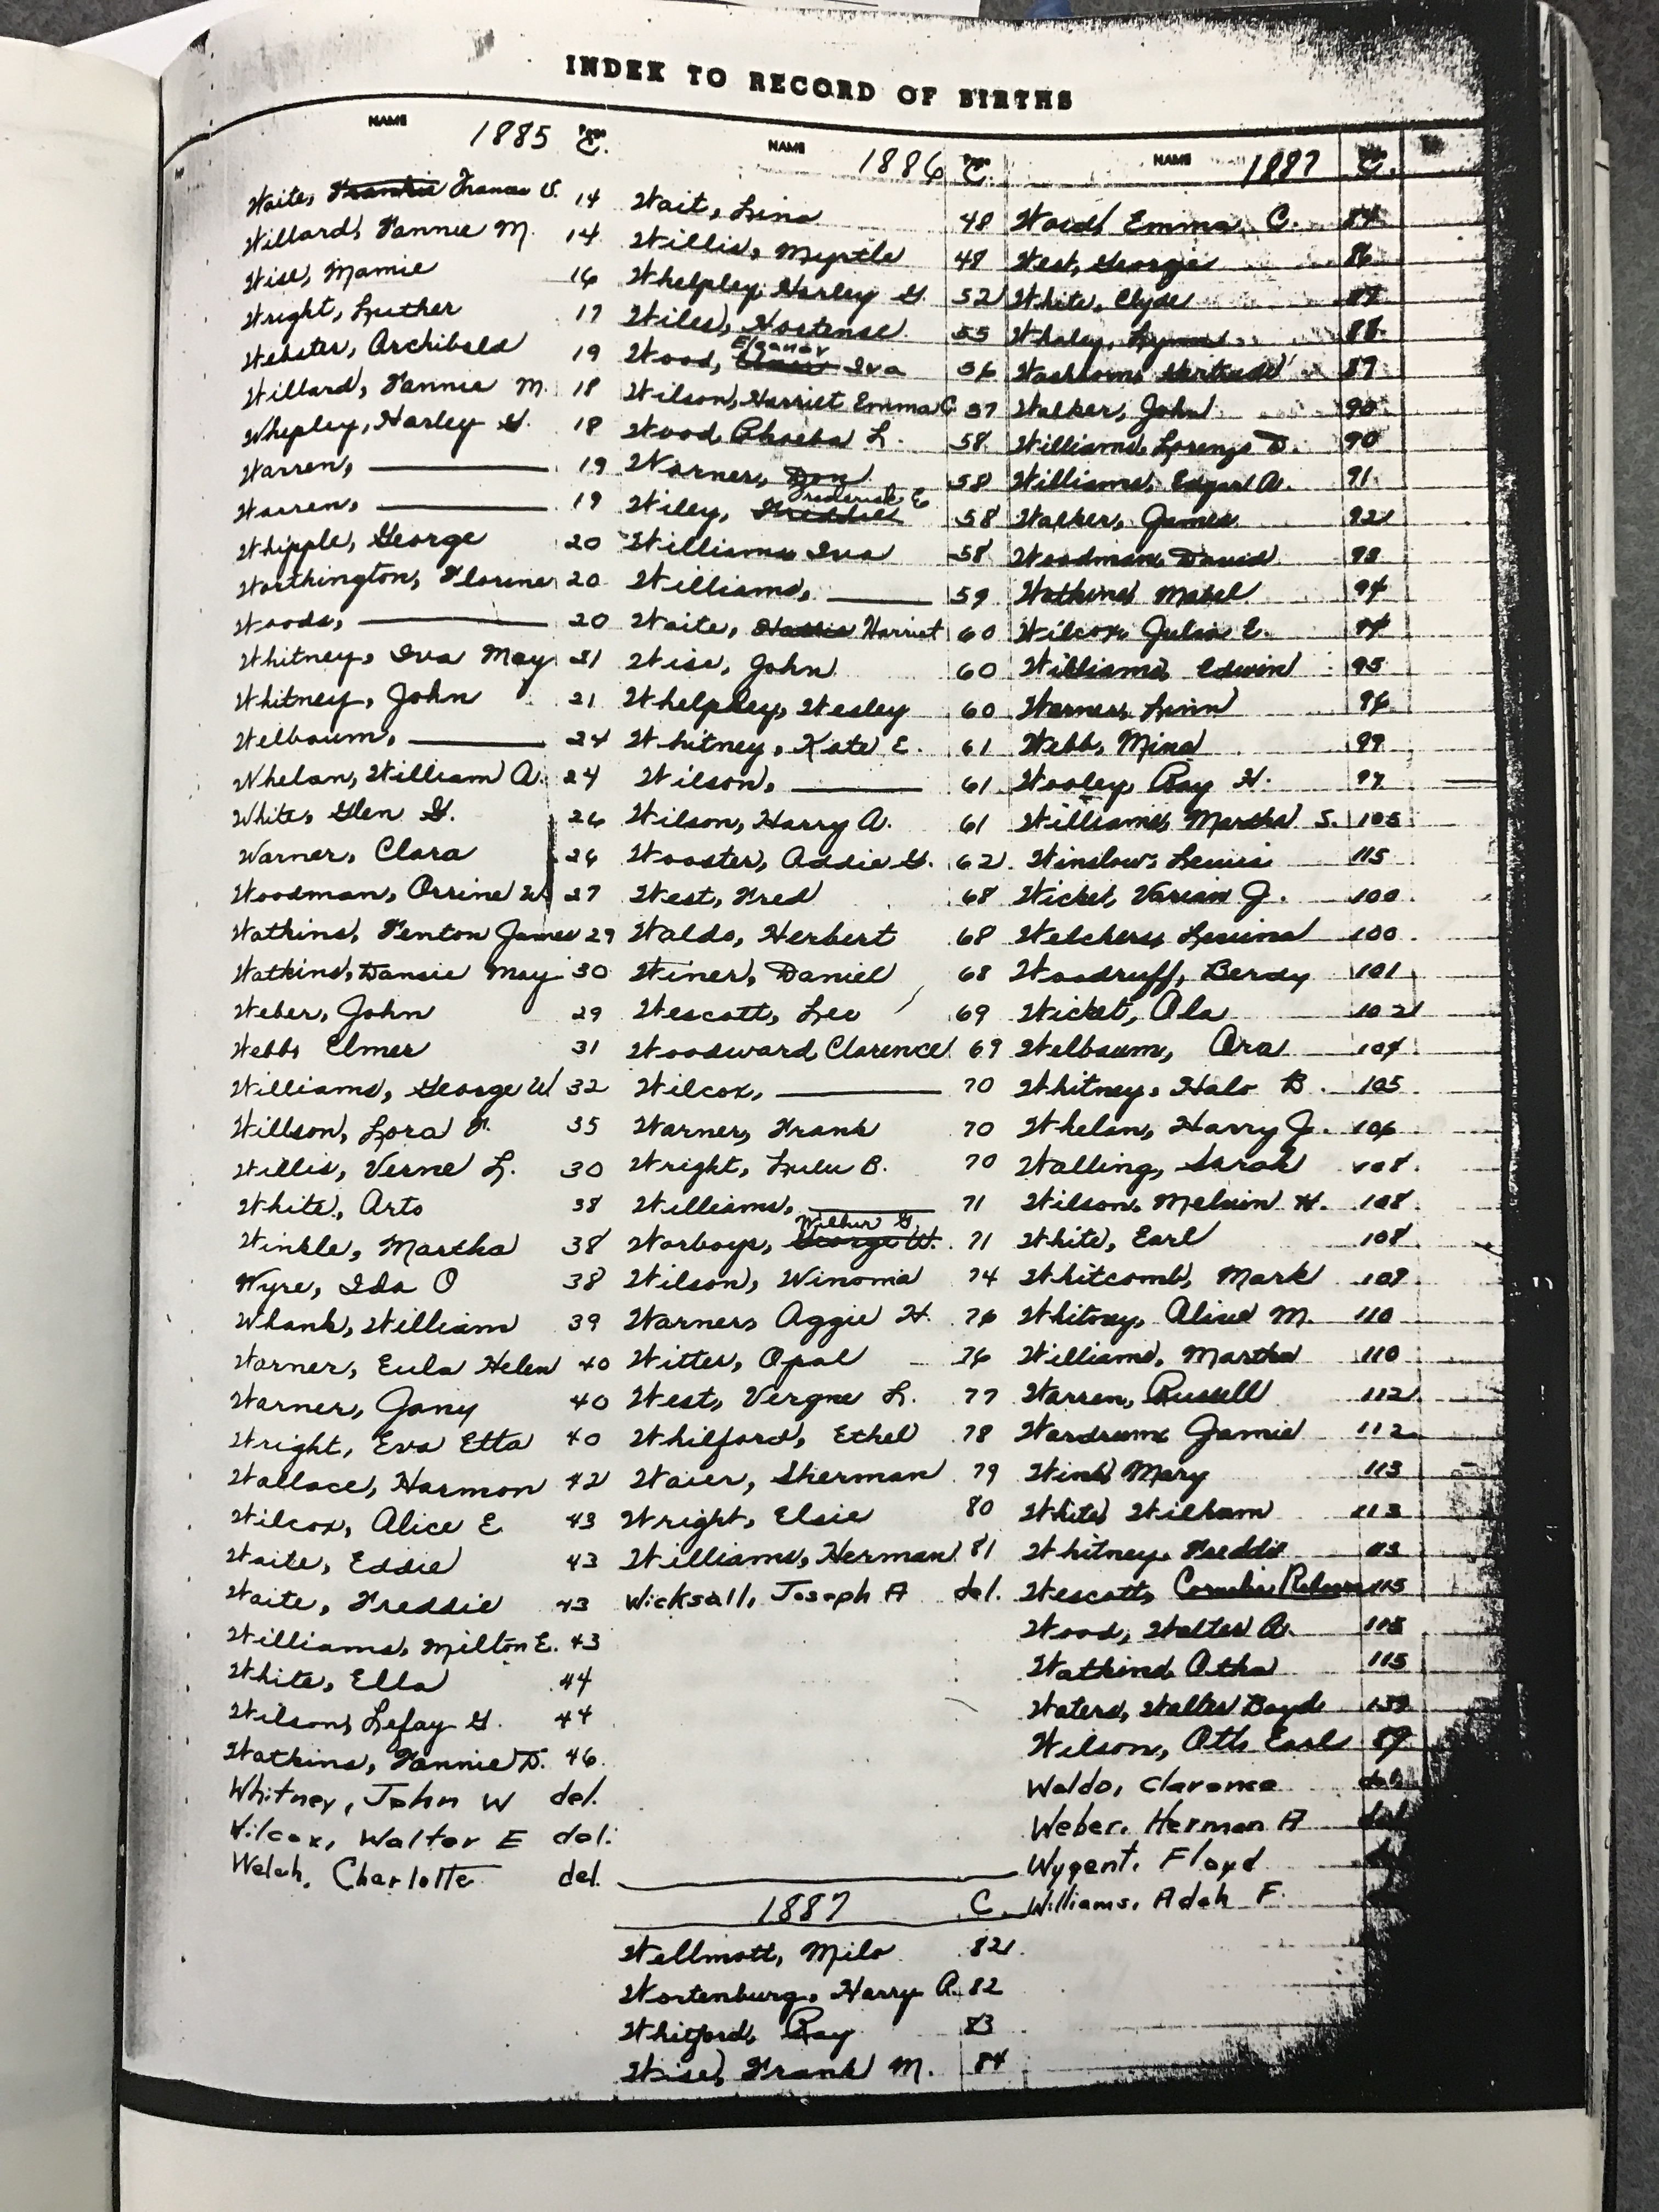 INDEX TO RECORD OF BIRTHS
NAME 1885 Page C.
Waite, Frankie Frances V. 14
Willard, Fannie M. 14
Wise, Mamie 16
Wright, Luther 17
Webster, Archibald 19
Willard, Fannie M. 18
Whepley, Harley G. 18
Warren, 19
Warren, 19
Whipple, George 20
Worthington, Florine 20
Woods, 20
Whitney, Iva May 21
Whitney, John 21
Welbaum, 24
Whelan, William A. 24
White, Glen G. 26
Warner, Clara 26
Woodman, Orrine W. 27
Watkins, Fenton James 29
Watkins, Dansie May 30
Weber, John 29
Webb, Elmer 31
Williams, George W 32
Willson, Lora F. 35
Willis, Verne L. 30
White, Arto 38
Winkle, Martha 38
Wyre, Ida O 38
Whank, William 39
Warner, Eula Helen 40
Warner, Jany 40
Wright, Eva Etta 40
Wallace, Harmon 42
Wilcox, Alice E. 43
Waite, Eddie 43
Waite, Freddie 43
Williams, Milton E. 43
White, Ella 44
Wilson, Lefay G. 44
Watkins, Fannie D. 46
Whitney, John W del.
Wilcox, Walter E del.
Welch, Charlotte del.
NAME 1886 Page C.
Wait, Lina 48
Willis, Myrtle 48
Whelpley, Harley G. 52
Wiles, Hortense 55
Eleanor
Wood, Iva 56
Wilson, Harriet Emma C 57
Wood, Phoeba L. 58
Warner, Don 58
Frederick E
Wiley, Freddie 58
Williams, Iva 58
Williams, 59
Waite, Hattie Harriet 60
Wise, John 60
Whelpley, Wesley 60
Whitney, Kate E. 61
Wilson, 61
Wilson, Harry A. 61
Wooster, Addie G. 62
West, Fred 68
Waldo, Herbert 68
Winer, Daniel 68
Wescott, Leo 69
Woodward, Clarence 69
Wilcox, 70
Warner, Frank 70
Wright, Lulu B. 70
Williams, 71
Wilbur G.
Worboys, George W. 71
Wilson, Winoma 74
Warner, Aggie H. 76
Witter, Opal 76
West, Vergne L. 77
Whilford, Ethel 78
Waier, Sherman 79
Wright, Elsie 80
Williams, Herman 81
Wicksall, Joseph A del.
1887 C.
Wellmott, Milo 82
Wortenburg, Harry A. 82
Whitford, Ray 83
Wise, Frank M. 84
NAME 1887 C.
Ward, Emma C. 84
West, George 86
White, Clyde
Whaley, Lyman 88
Washburn, Gertrude 89
Walker, John 90
Williams, Lorenzo D. 90
Williams, Edgar A. 91
Walker, James 92
Woodman, David 93
Watkins, Mabel 94
Wilcox, Julia E. 94
Williams, Edwin 95
Warner, Linn 96
Webb, Mina 99
Wooley, Ray H. 97
Williams, Martha S. 105
Winslow, Lewis 115
Wicket, Varian J. 100
Welcher, Louina 100
Woodruff, Berdy 101
Wicket, Ala 102
Welbaum, Ora 104
Whitney, Halo B. 105
Whelan, Harry J. 106
Walling, Sarah 108
Wilson, Melvin H. 108
White, Earl 108
Whitcomb, Mark 109
Whitney, Alice M. 110
Williams, Martha 110
Warren, Russell 112
Wardrum, Jamie 112
Wink, Mary 113
White, William 113
Whitney, Freddie 113
Wescott, Cornelia 115
Wood, Walter A. 115
Watkins, Otha 115
Waters, Walter Boyd 139
Wilson, Oth Earl 89
Waldo, Clarence del.
Weber, Herman A del.
Wygent, Floyd
Williams, Adah F.